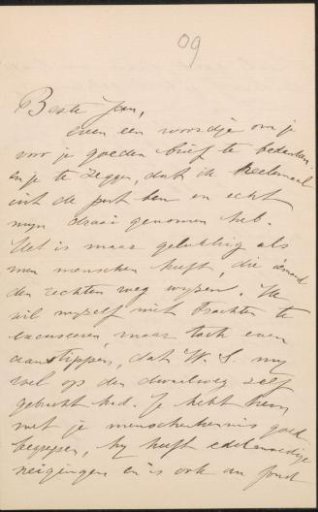 09
Beste Jan,
even een woordje om je
voor je goeden brief te bedanken
en je te zeggen, dat ik heelemaal
uit de put ben en echt
mijn draai genomen heb.
Het is maar gelukkig als
men menschen heeft, die iemand
den rechten weg wijzen. Ik
wil mijzelf niet trachten te
excuseeren, maar toch even
aanstippen, dat W. S. mij
wel op den dwaalweg zelf
gebracht had. Je hebt hem
met je menschenkennis goed
begrepen, hij heeft
neigingen en is ook au fond